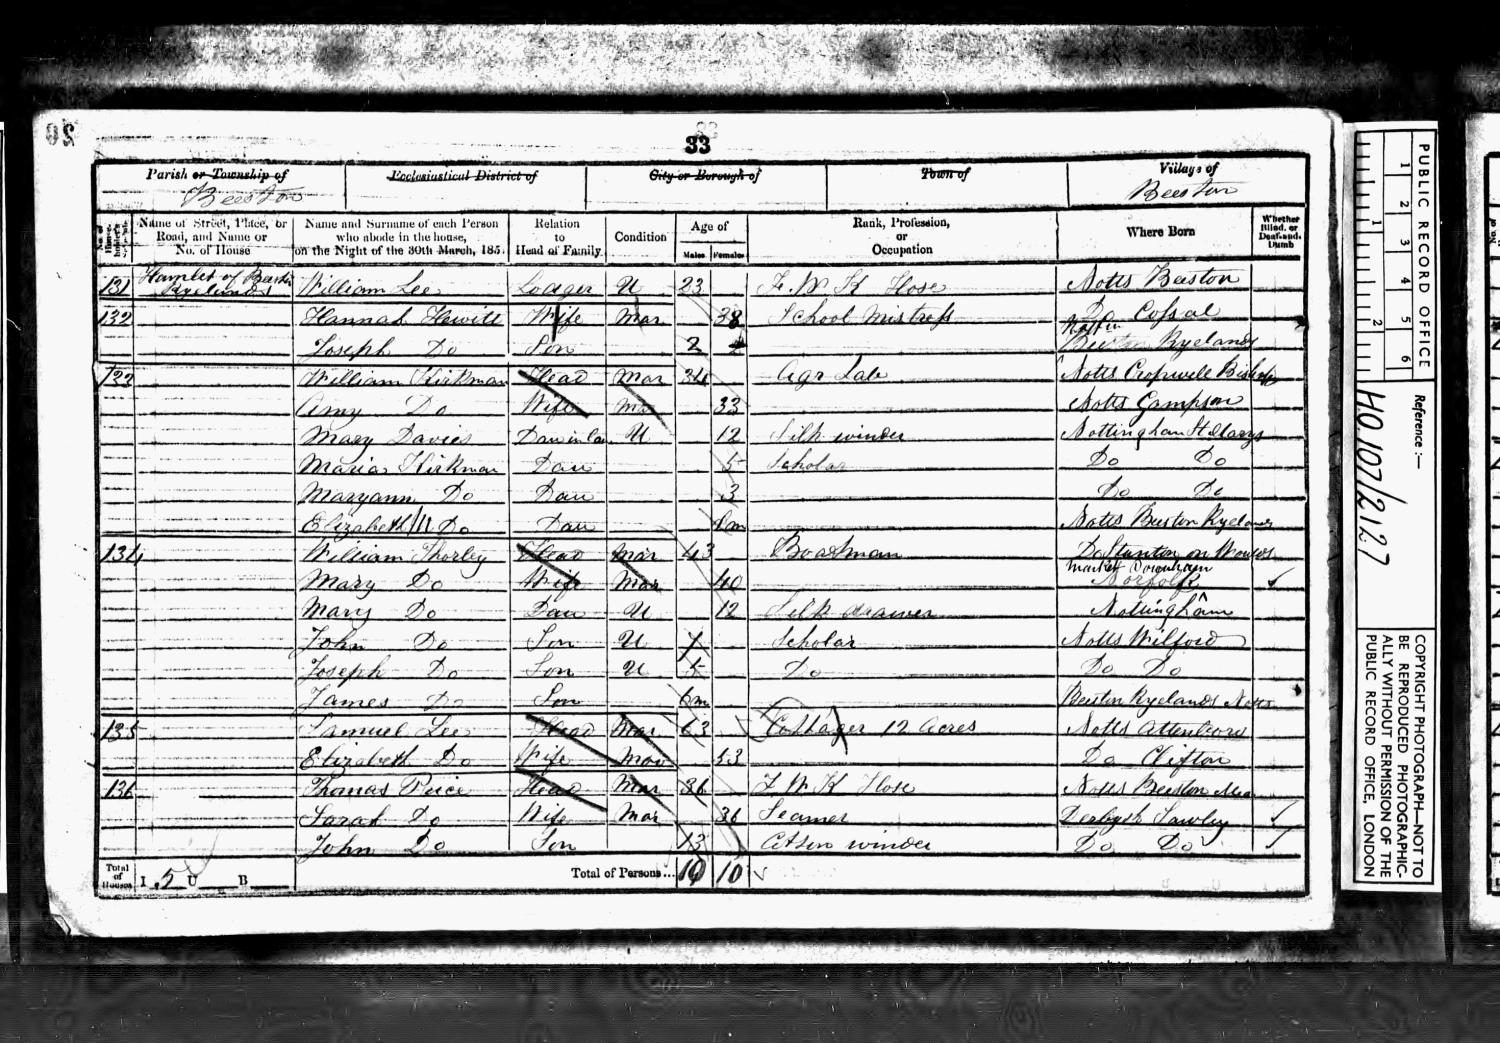 33
Parish or Township of
Beeston
Ecclesiastical District of
City or Borough of
Town of
Village of
Beeston
Name of Street, Place, or Road, and Name or No. of House
Name and Surname of each Person who abode in the house, on the Night of the 30th March, 185
Relation to Head of Family
Condition
Age of
Males Females
Rank, Profession, or Occupation
Where Born
Whether Blind, or Deaf-and-Dumb
131 Hamlet of Beeston Ryelands William Lee Lodger U 23 F W K Hose Notts Beeston
132 Hannah Hewitt Wife Mar 38 School Mistress Do Cossal
Joseph Do Son 2 Notts Beeston Ryelands
133 William Kirkman Head Mar 34 Agr Lab Notts Cropwell Bishop
Amy Do Wife Mar 33 Notts Gampson
Mary Davies Dau in law U 12 Silk winder Nottingham St Marys
Maria Kirkman Dau 5 Scholar Do Do
Maryann Do Dau 3 Do Do
Elizabeth Do Dau Notts Beeston Ryelands
134 William Thorley Head Mar 43 Boatman Do Stanton on Woulds
Mary Do Wife Mar 40 Market Downham Norfolk
Mary Do Dau U 12 Silk drawer Nottingham
John Do Son U 7 Scholar Notts Wilford
Joseph Do Son U 5 Do Do Do
James Do Son 6m Beeston Ryelands Notts
135 Samuel Lee Head Mar 63 Cottager 12 Acres Notts Attenboro
Elizabeth Do Wife Mar 53 Do Clifton
136 Thomas Price Head Mar 36 F W K Hose Notts Beeston
Sarah Do Wife Mar 36 Seamer Derbysh Sawley
John Do Son 13 Cotton winder Do Do
Total of Houses I 5 U B Total of Persons... 10 10
PUBLIC RECORD OFFICE
1 2 3 4 5 6
1 2
Reference :—
HO 107/2127
COPYRIGHT PHOTOGRAPH—NOT TO BE REPRODUCED PHOTOGRAPHIC-ALLY WITHOUT PERMISSION OF THE PUBLIC RECORD OFFICE, LONDON